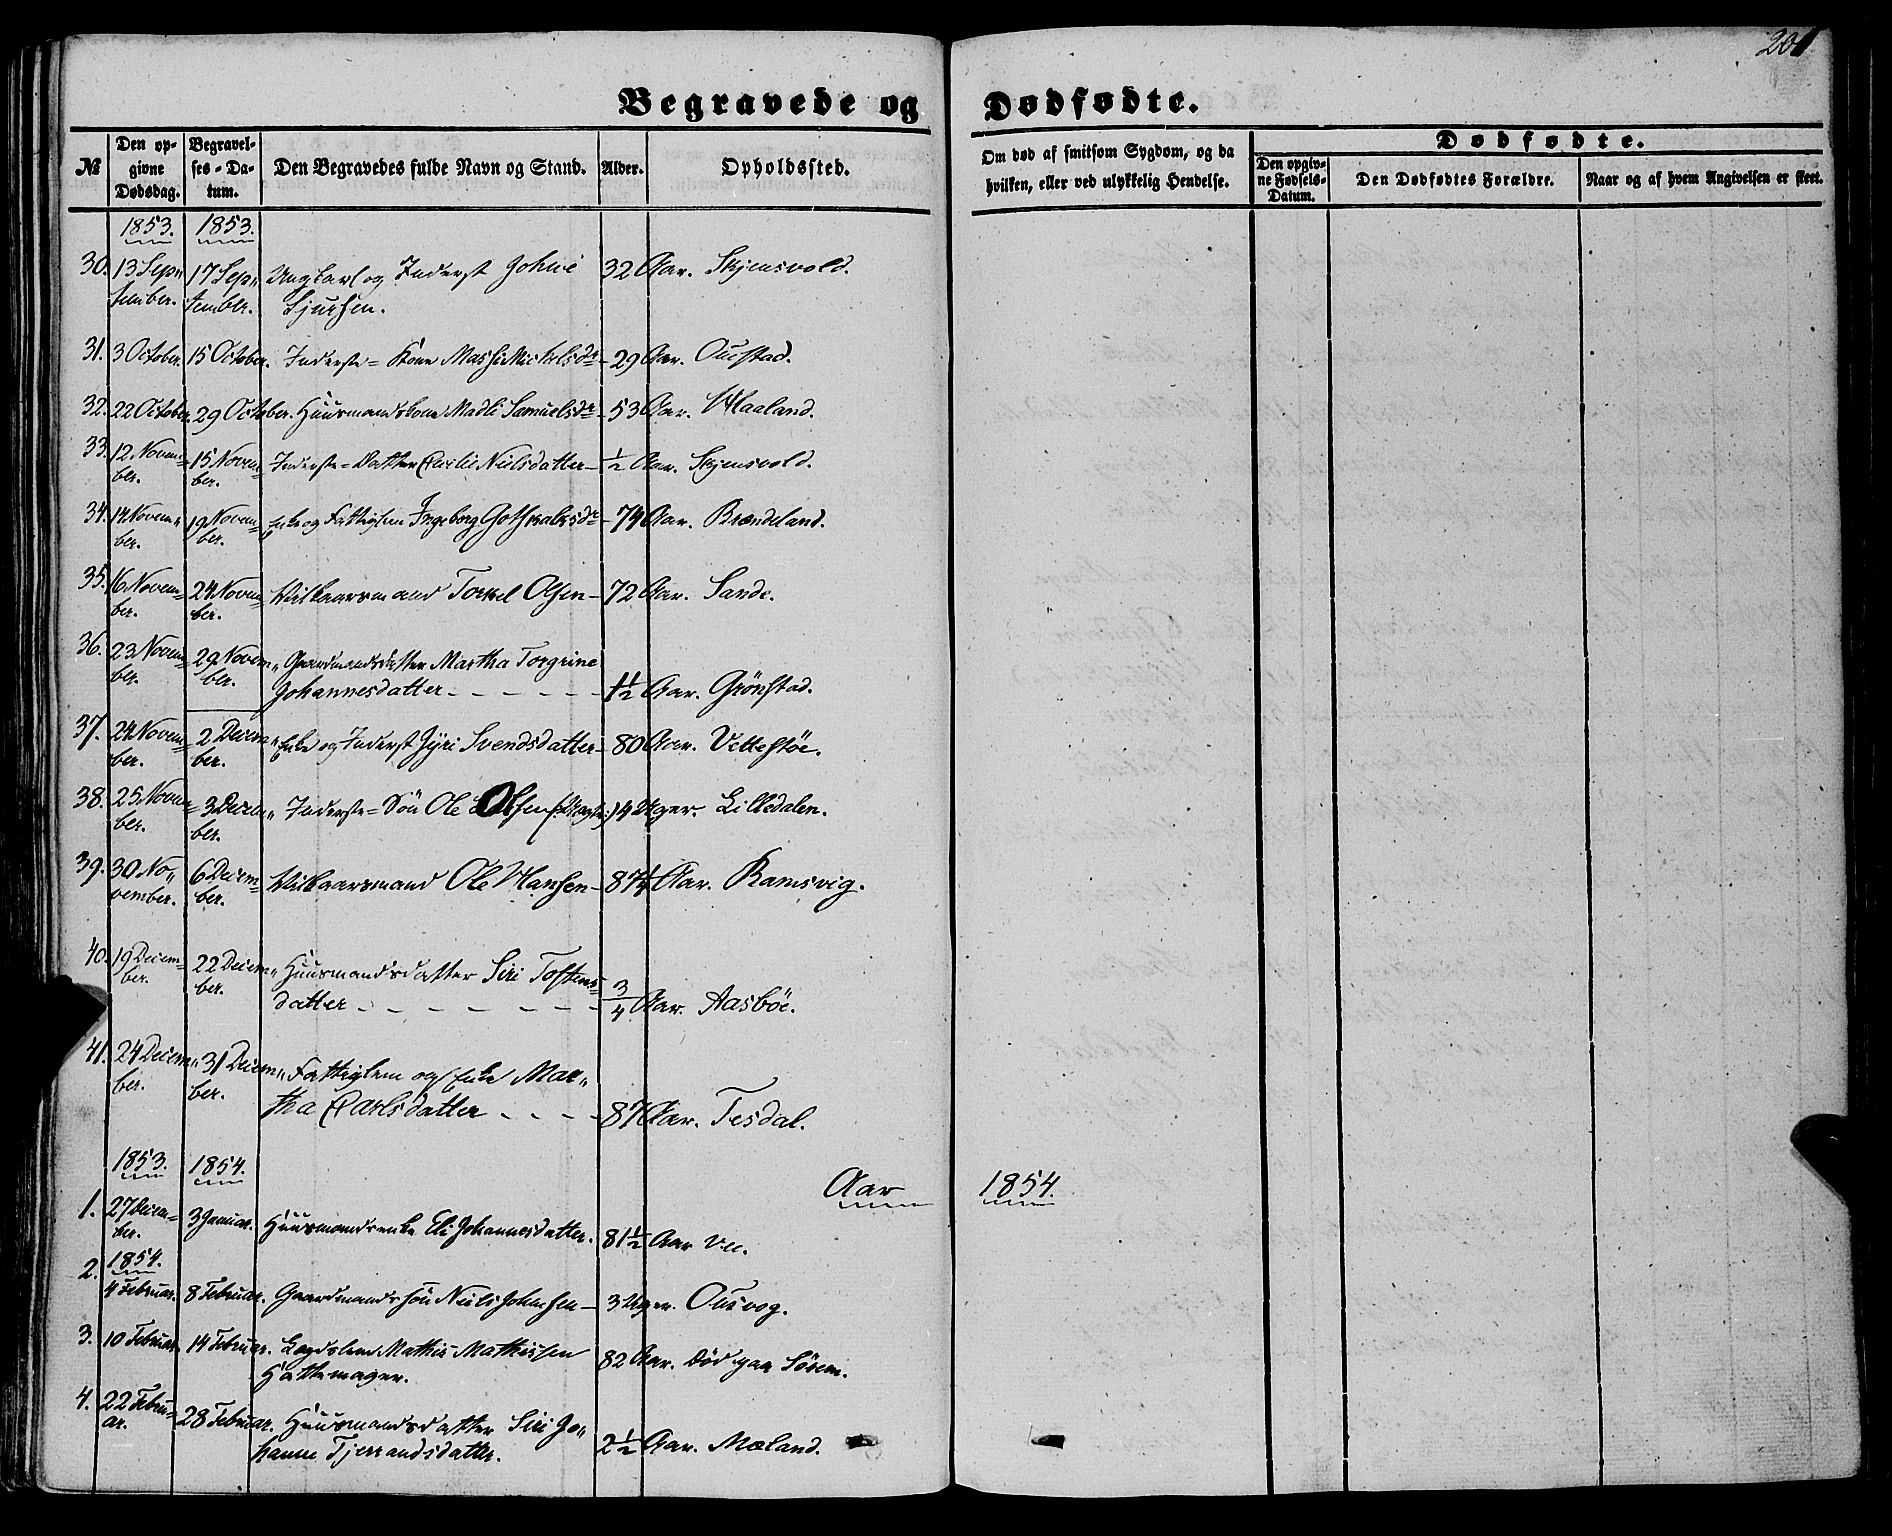 201
Begravede og Dødfødte.
№
Den opgivne Dødsdag.
Begravelses-Datum.
Den Begravedes fulde Navn og Stand.
Alder.
Opholdssted.
Om død af smitsom Sygdom, og da hvilken, eller ved ulykkelig Hendelse.
Dødfødte.
Den opgivne Fødsels-Datum.
Den Dødfødtes Forældre.
Naar og af hvem Angivelsen er skeet.
1853. 1853.
30. 13 September. 17 September. Ungkarl og Inderst Johne Sjursen. 32 Aar. Skjensvold.
31. 3 October. 15 October. Inderste-Kone Massi Mickelsdr 29 Aar. Oustad.
32. 22 October. 29 October. Huusmandskone Madli Samuelsdr 53 Aar. Haaland.
33. 12 November. 15 November. Inderste-Datter Carlie Nielsdatter 1/2 Aar. Skjensvold.
34. 14 November. 19 November. Enke og Fattiglem Ingeborg Gothskalksdr 74 Aar. Brændeland.
35. 16 November. 24 November. Vilkaarsmand Torkel Olsen 72 Aar. Sande.
36. 23 November. 29 November. Gaardmandsdatter Martha Torgrine Johannesdatter 1 1/2 Aar. Grönstad.
37. 24 November. 2 December. Enke og Inderst Jyri Svendsdatter 80 Aar. Vettestöe.
38. 25 November. 3 December. Inderste-Sön Ole Olsen 14 Uger. Lilledalen.
39. 30 November. 6 December. Vilkaarsmand Ole Hansen 87 1/4 Aar. Ramsvig.
40. 19 December. 22 December. Huusmandsdatter Siri Tostensdatter 3/4 Aar. Aasböe.
41. 24 December. 31 December. Fattiglem og Enke Martha Carlsdatter 87 Aar. Tesdal.
1853. 1854.
Aar 1854.
1. 27 December. 3 Januar. Huusmandsenke Eli Johannesdatter. 81 1/2 Aar Vee.
1854.
2. 4 Februar. 8 Februar. Gaardmandssön Niels Johnsen 3 Uger. Ousvog.
3. 10 Februar. 14 Februar. Lægdslem Mathis Mathissen Hattemager. 82 Aar. Död paa Sörem.
4. 22 Februar. 28 Februar. Huusmandsdatter Siri Johanne Tjerrandsdatter. 2 1/2 Aar. Mæland.